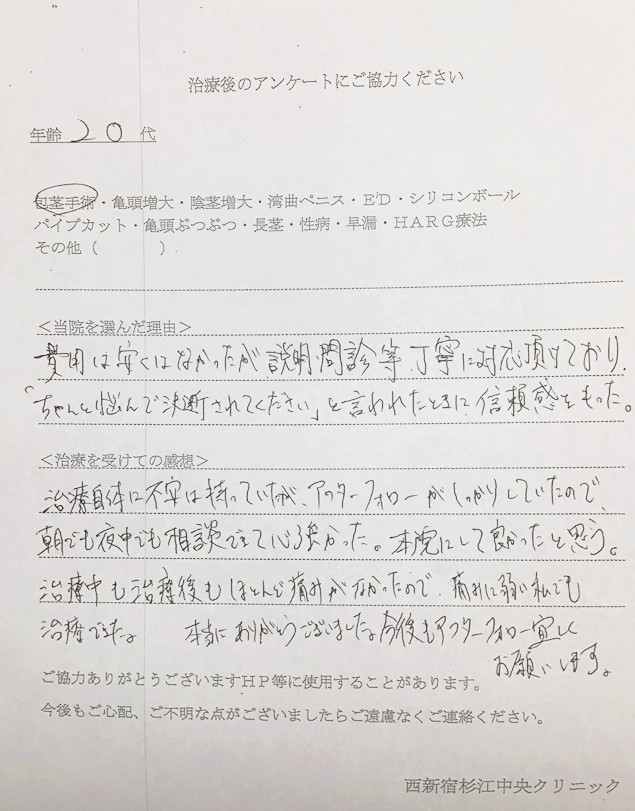 治療後のアンケートにご協力ください
年齢 20 代
包茎手術・亀頭増大・陰茎増大・湾曲ペニス・E'D・シリコンボール
パイプカット・亀頭ぶつぶつ・長茎・性病・早漏・HARG療法
その他（　　　　）
＜当院を選んだ理由＞
費用は安くはなかったが説明、問診等、丁寧に対応頂けており、
「ちゃんと悩んで決断されてください」と言われたときに信頼感をもった。
＜治療を受けての感想＞
治療自体に不安は持っていたが、アフターフォローがしっかりしていたので、
朝でも夜中でも相談できて心強かった。本院にして良かったと思う。
治療中も治療後もほとんど痛みがなかったので、痛みに弱い私でも
治療できた。 本当にありがとうございました。今後もアフターフォロー宜しく
お願いします。
ご協力ありがとうございますＨＰ等に使用することがあります。
今後もご心配、ご不明な点がございましたらご遠慮なくご連絡ください。
西新宿杉江中央クリニック